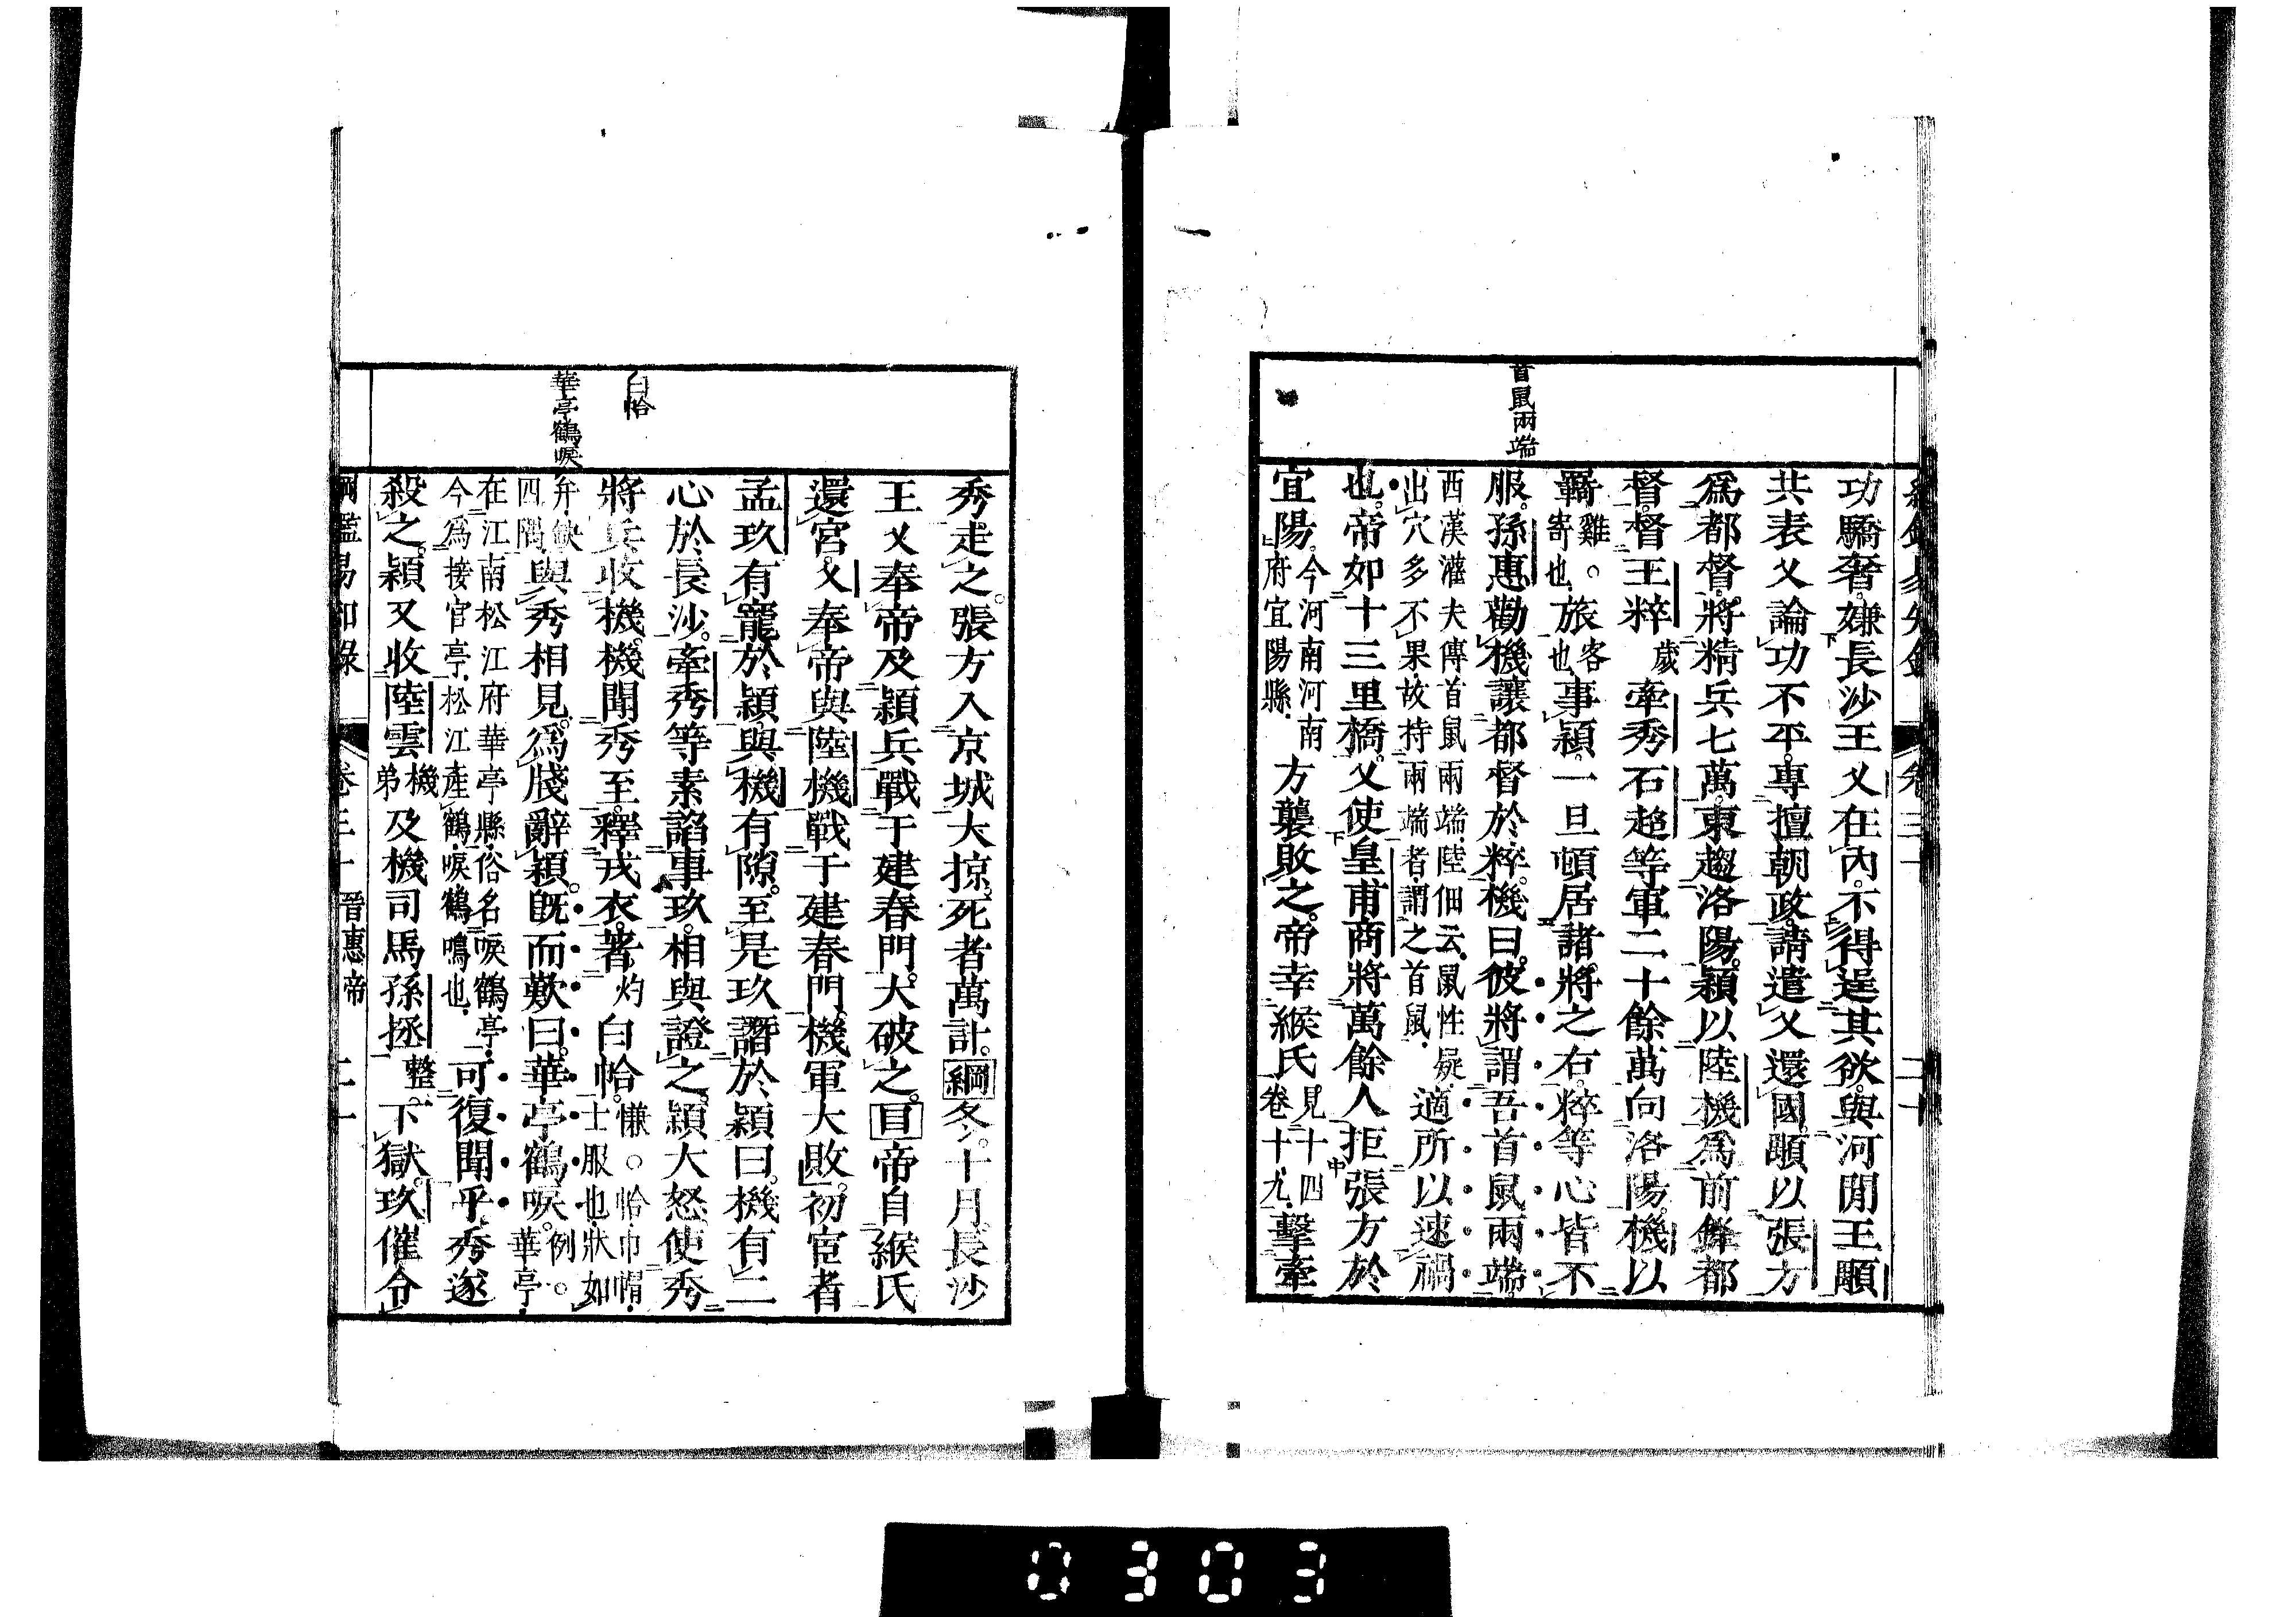 首鼠兩端
功驕奢。嫌長沙王乂在內。不得逞其欲。與河閒王顒
共表乂論功不平。專擅朝政。請遣乂還國。顒以張方
爲都督。將精兵七萬。東趨洛陽。穎以陸機爲前鋒都
督。督王粹歲牽秀石超等軍二十餘萬向洛陽。機以
羇雞。○旅客寄也也事穎。一旦頓居諸將之右。粹等心皆不
服。孫惠勸機讓都督於粹。機曰。彼將謂吾首鼠兩端。
西漢灌夫傳首鼠兩端。陸佃云。鼠性疑。
出穴多不果。故持兩端者。謂之首鼠。適所以速禍
也。帝如十三里橋。乂使皇甫商將萬餘人拒張方於
宜陽。今河南河南府宜陽縣。方襲敗之。帝幸緱氏見十四卷十九。擊牽
白帢
華亭鶴唳
秀。走之。張方入京城大掠。死者萬計。綱冬。十月。長沙
王乂奉帝及穎兵戰于建春門。大破之。目帝自緱氏
還宮。乂奉帝與陸機戰于建春門。機軍大敗。初宦者
孟玖有寵於穎。與機有隙。至是玖譖於穎曰。機有二
心於長沙。牽秀等素諂事玖。相與證之。穎大怒。使秀
將兵收機。機聞秀至。釋戎衣。著灼白帢。慊。○帢巾帽。士服也。狀如
弁。缺四隅。與秀相見。爲牋辭穎。旣而歎曰。華亭鶴唳。例。○華亭。
在江南松江府華亭縣。俗名唳鶴亭。
今爲接官亭。松江產鶴。唳鶴鳴也。可復聞乎。秀遂
殺之。穎又收陸雲機弟及機司馬孫拯整。下獄。玖催令
綱鑑易知錄 卷三十 晉惠帝 二十一